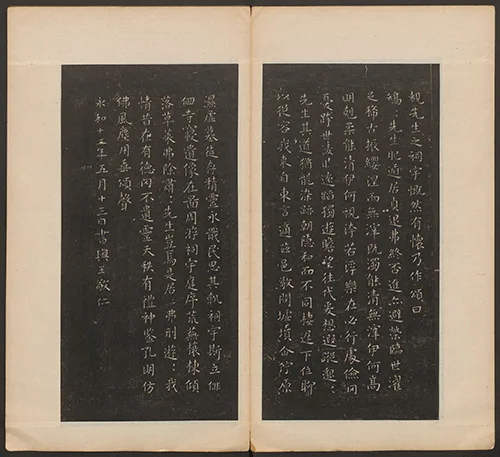 覩先生之祠宇慨然有懷乃作頌曰
矯〻先生肥遁居貞退弗終否進亦避榮臨世濯
足稀古振纓涅而無滓既濁能清無滓伊何高
明剋柔能清伊何視洿若浮樂在必行處儉罔
憂跨世淩時遠蹈獨遊瞻望往代爰想遐蹤邈〻
先生其道猶龍染跡朝隱和而不同棲遲下位聊
以從容我來自東言適茲邑敬問墟墳企佇原
隰虛墓徒存精靈永戢民思其軌祠宇斯立俳
佪寺寢遺像在圖周游祠宇庭序荒蕪榱棟傾
落草萊弗除肅〻先生豈焉是居〻弗刑遊〻我
情昔在有德罔不遺靈天秩有禮神鑒孔明仿
佛風塵用垂頌聲
永和十二年五月十三日書與王敬仁